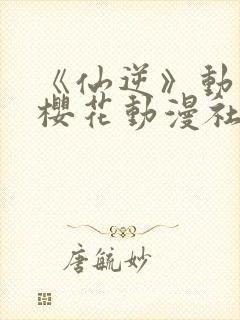 《仙逆》動
櫻花動漫社
唐毓妙